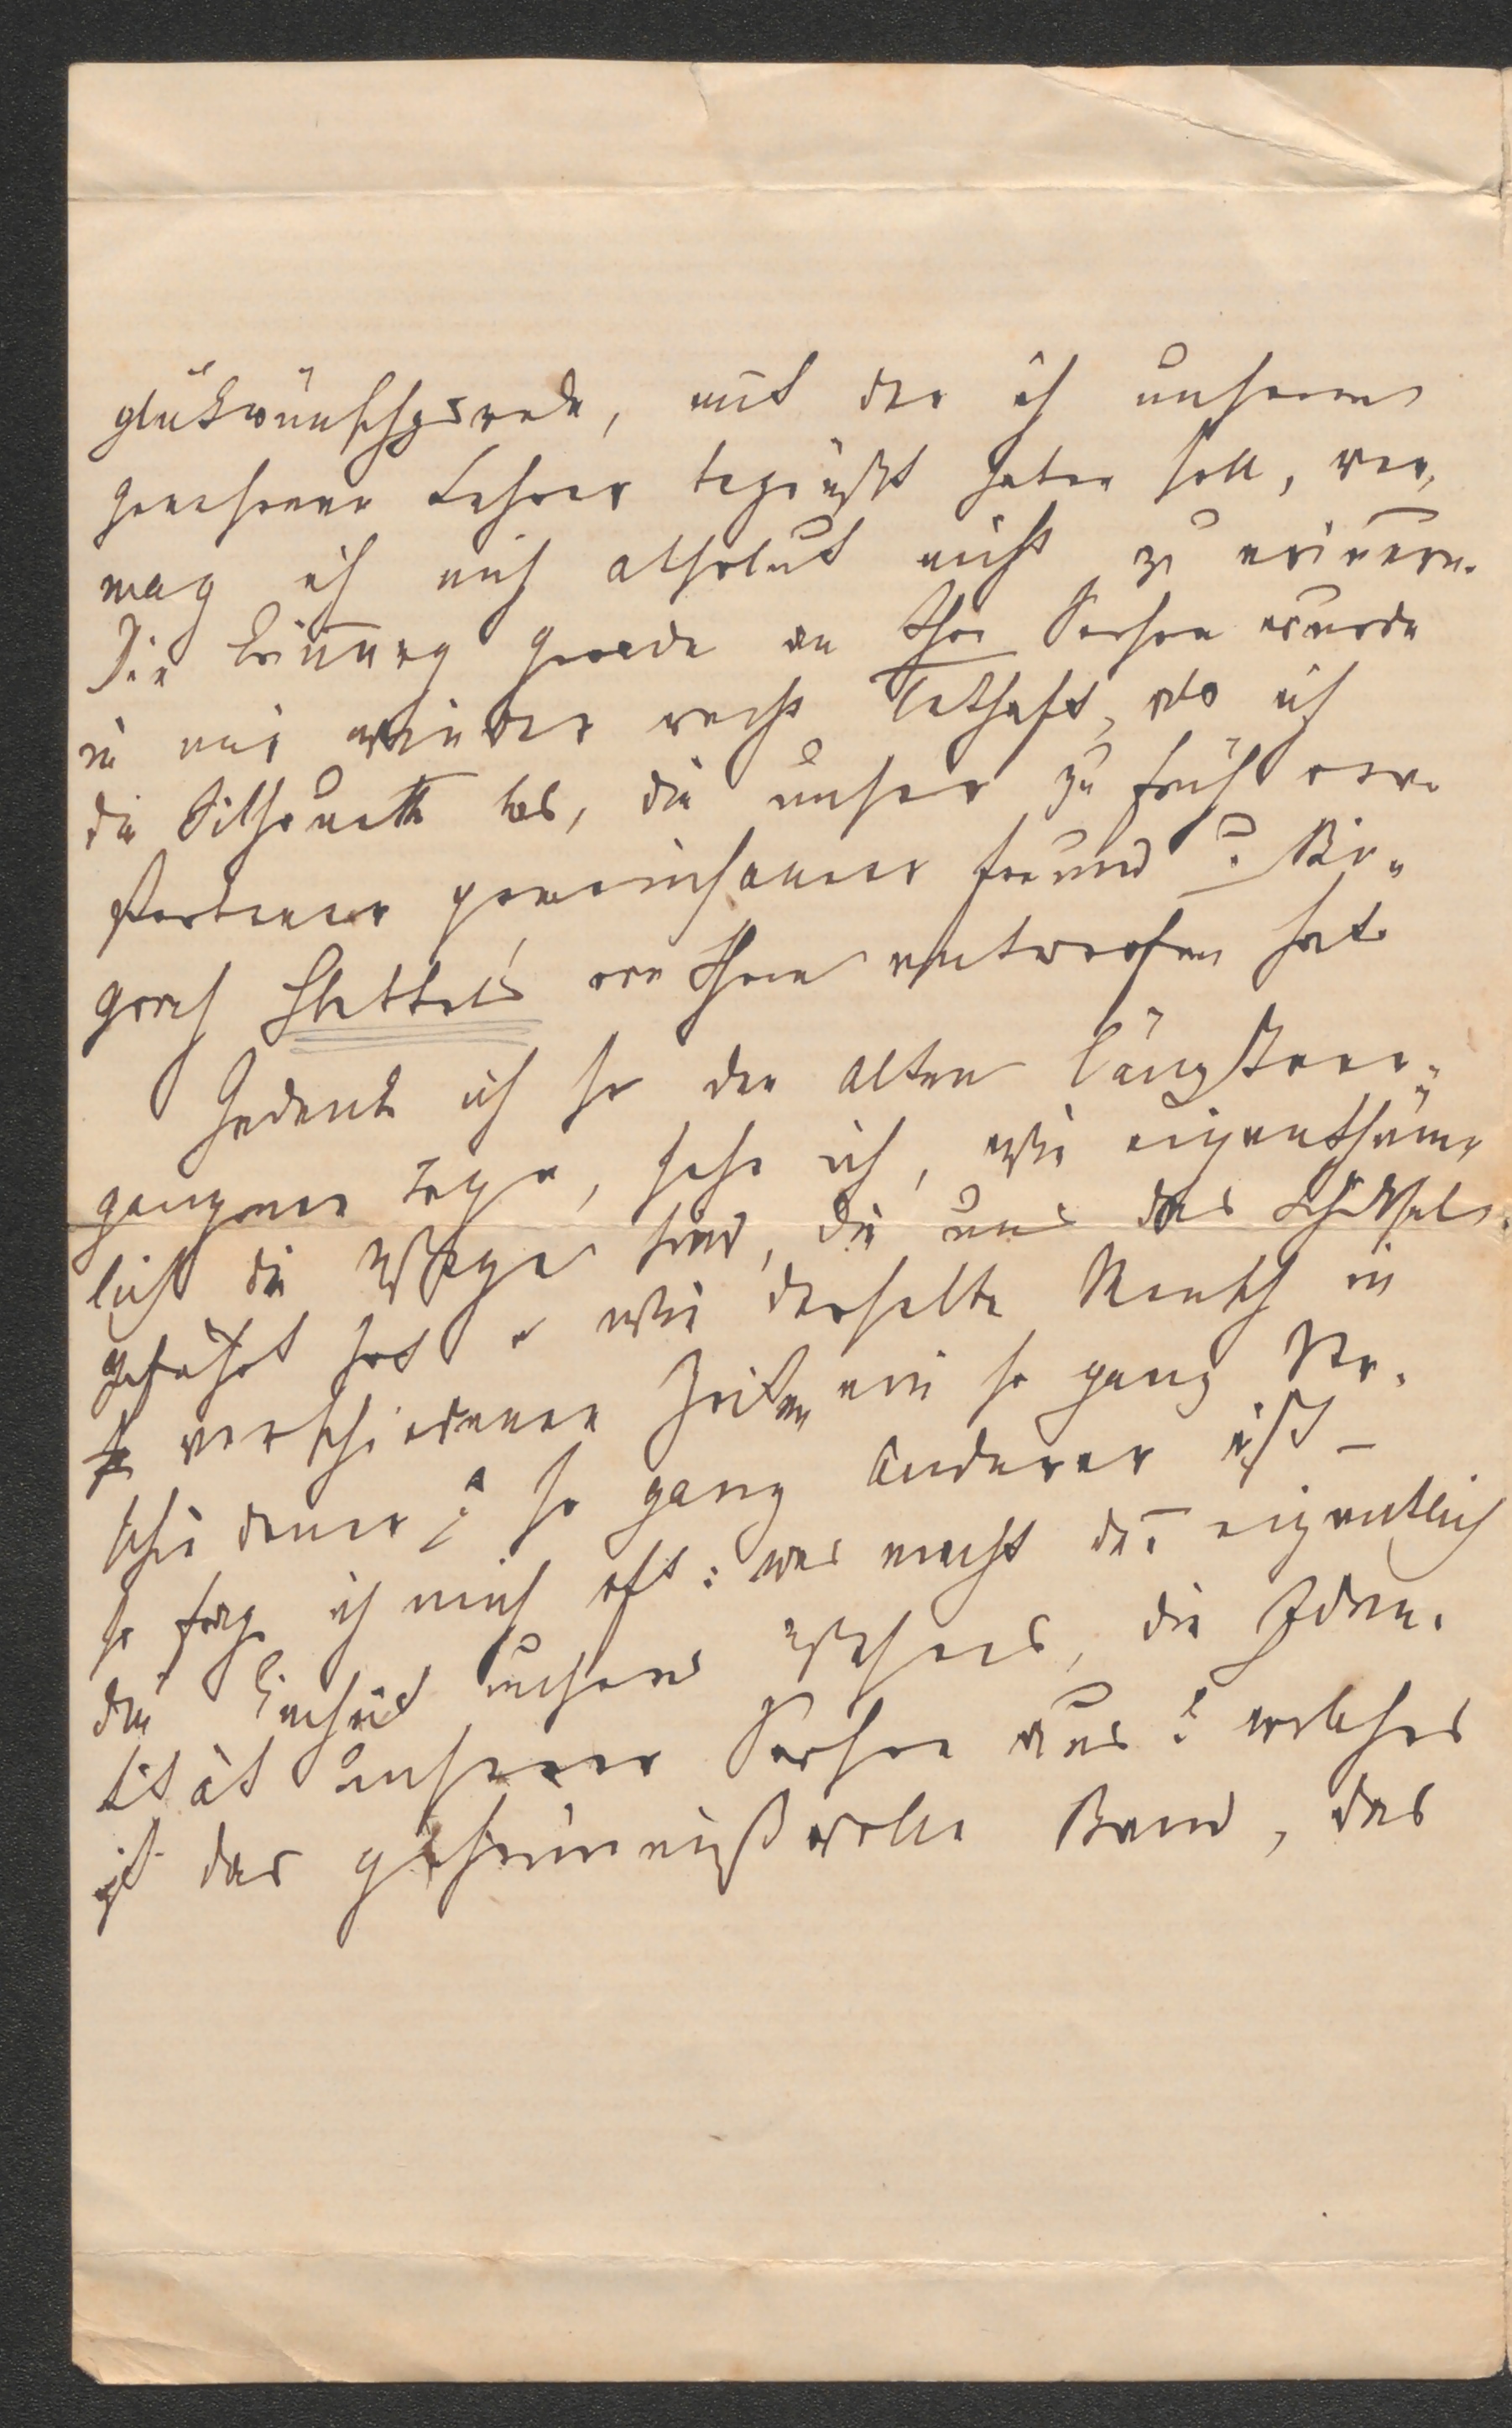 glükwünschgsrede, mit der ich unseren
genesenen Lehrer begrüßt haben soll, ver-
mag ich mich absolut nicht zu erinnern.
Die Erin̅erung gerade an Ihre Person wurde
in mir wieder recht lebhaft, als ich
die Silhouette las, die unser zu früh ver-
storbener gemeinsamer Freund u. Bio-
graph Hebbels von Ihnen entworfen hat.
Gedenk ich so der alten längstver-
gangenen Tage, sehe ich, wie eigenthüm-
lich die Wege sind, die uns das Schiksal
geführt hat u wie derselbe Mensch in
verschiedenen Zeiten ein so ganz Ver-
schiedener, so ganz Anderer ist –
so frage ich mich oft: was macht den̅ eigentlich
die Einheit unseres Wesens, die Iden-
tität unserer Person aus? welches
ist das geheimnißvolle Band, das